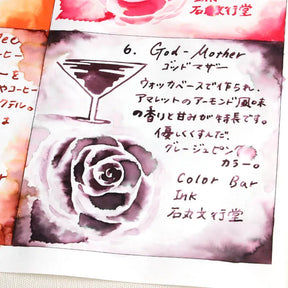 Ink
石丸文行堂
コーヒー
を
やコーヒー
クテル。
6. God-Mother
ゴッドマザー
ウォッカベースで作られ、
アマレットのアーモンド風味
の香りと甘みが特長です。
優しくくすんだ、
グレージュピンク
カラー。
Color Bar
Ink
石丸文行堂